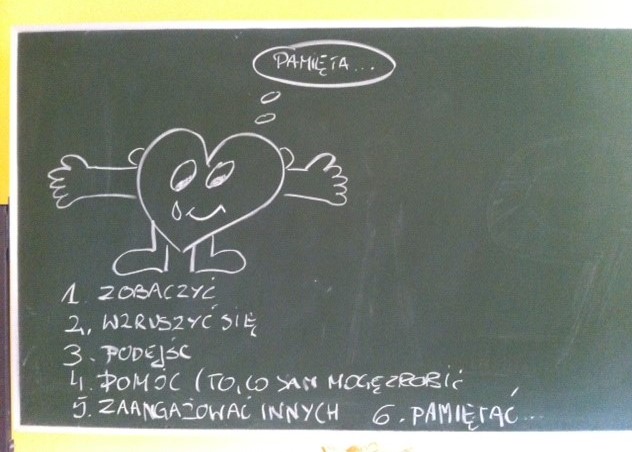 PAMIĘTA...
1. ZOBACZYĆ
2. WZRUSZYĆ SIĘ
3. PODEJŚĆ
4. POMÓC (TO, CO SAM MOGĘ ZROBIĆ
5. ZAANGAŻOWAĆ INNYCH 6. PAMIĘTAĆ...